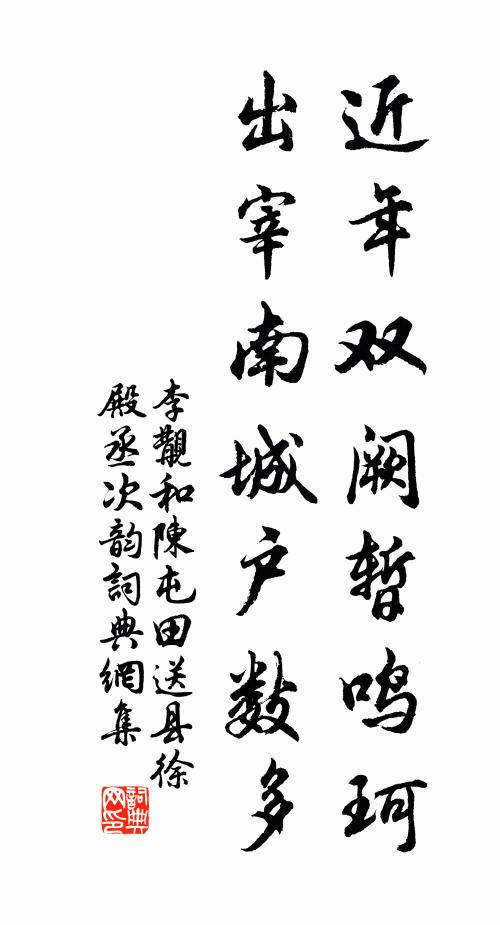 近年双阙暂鸣珂
出宰南城户数多
李覯和陳屯田送县徐
殿丞次韵詞典網集
詞典网印